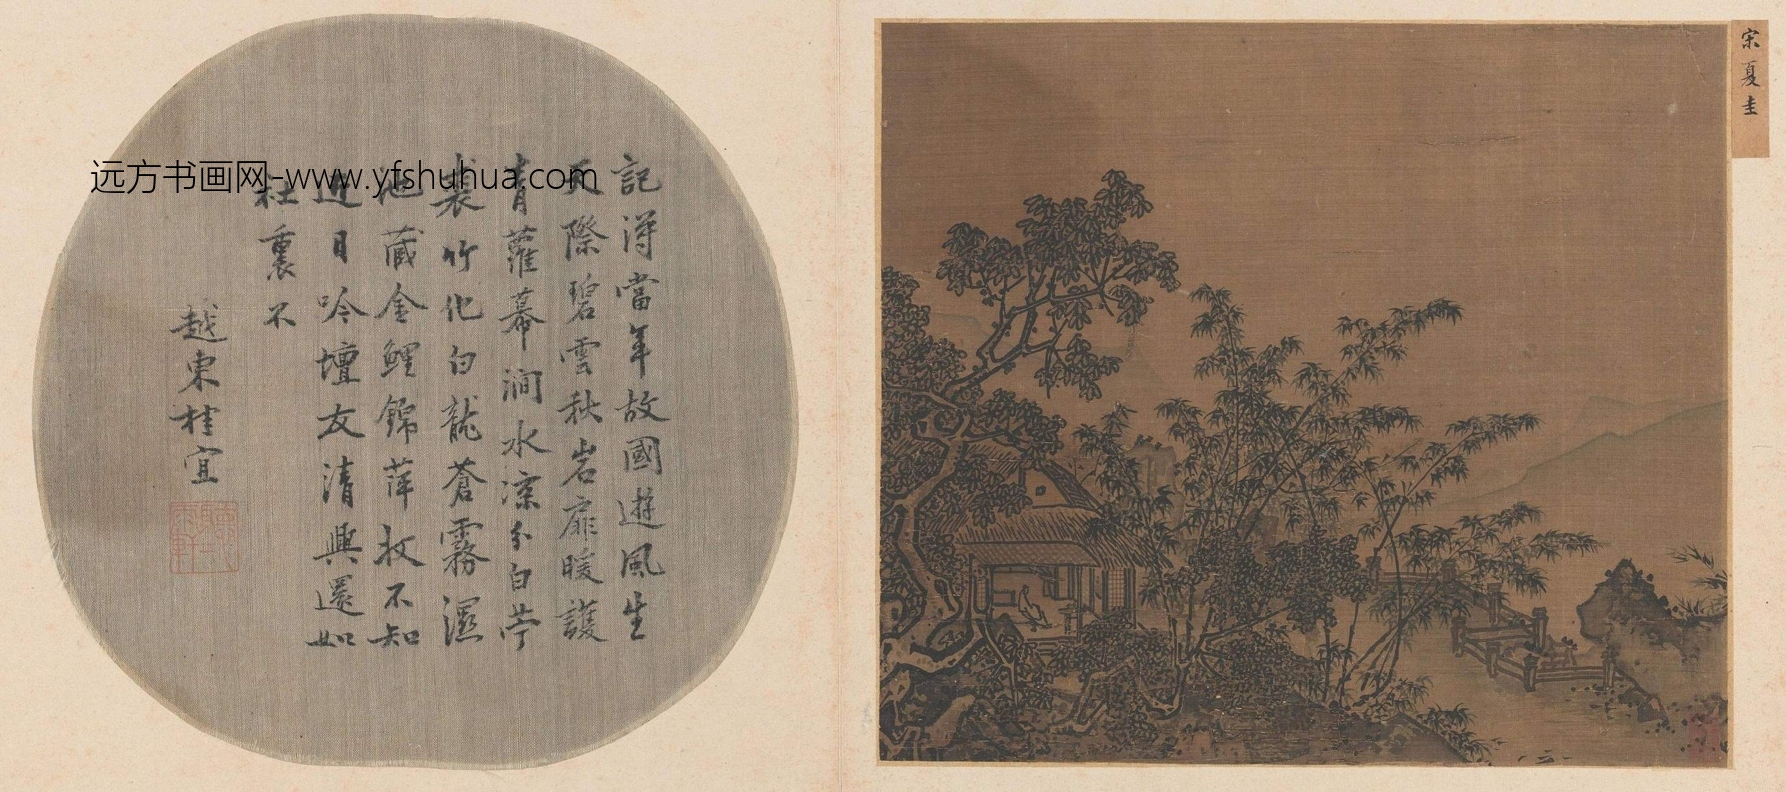 宋夏圭
記得當年故國遊風生
天際碧雲秋岩扉暖護
青蘿幕澗水涼分白苧
裘竹化白龍蒼霧濕
池藏金鯉錦萍收不知
近日吟壇友清興還如
社裏不
越東桂宜
远方书画网-www.yfshuhua.com